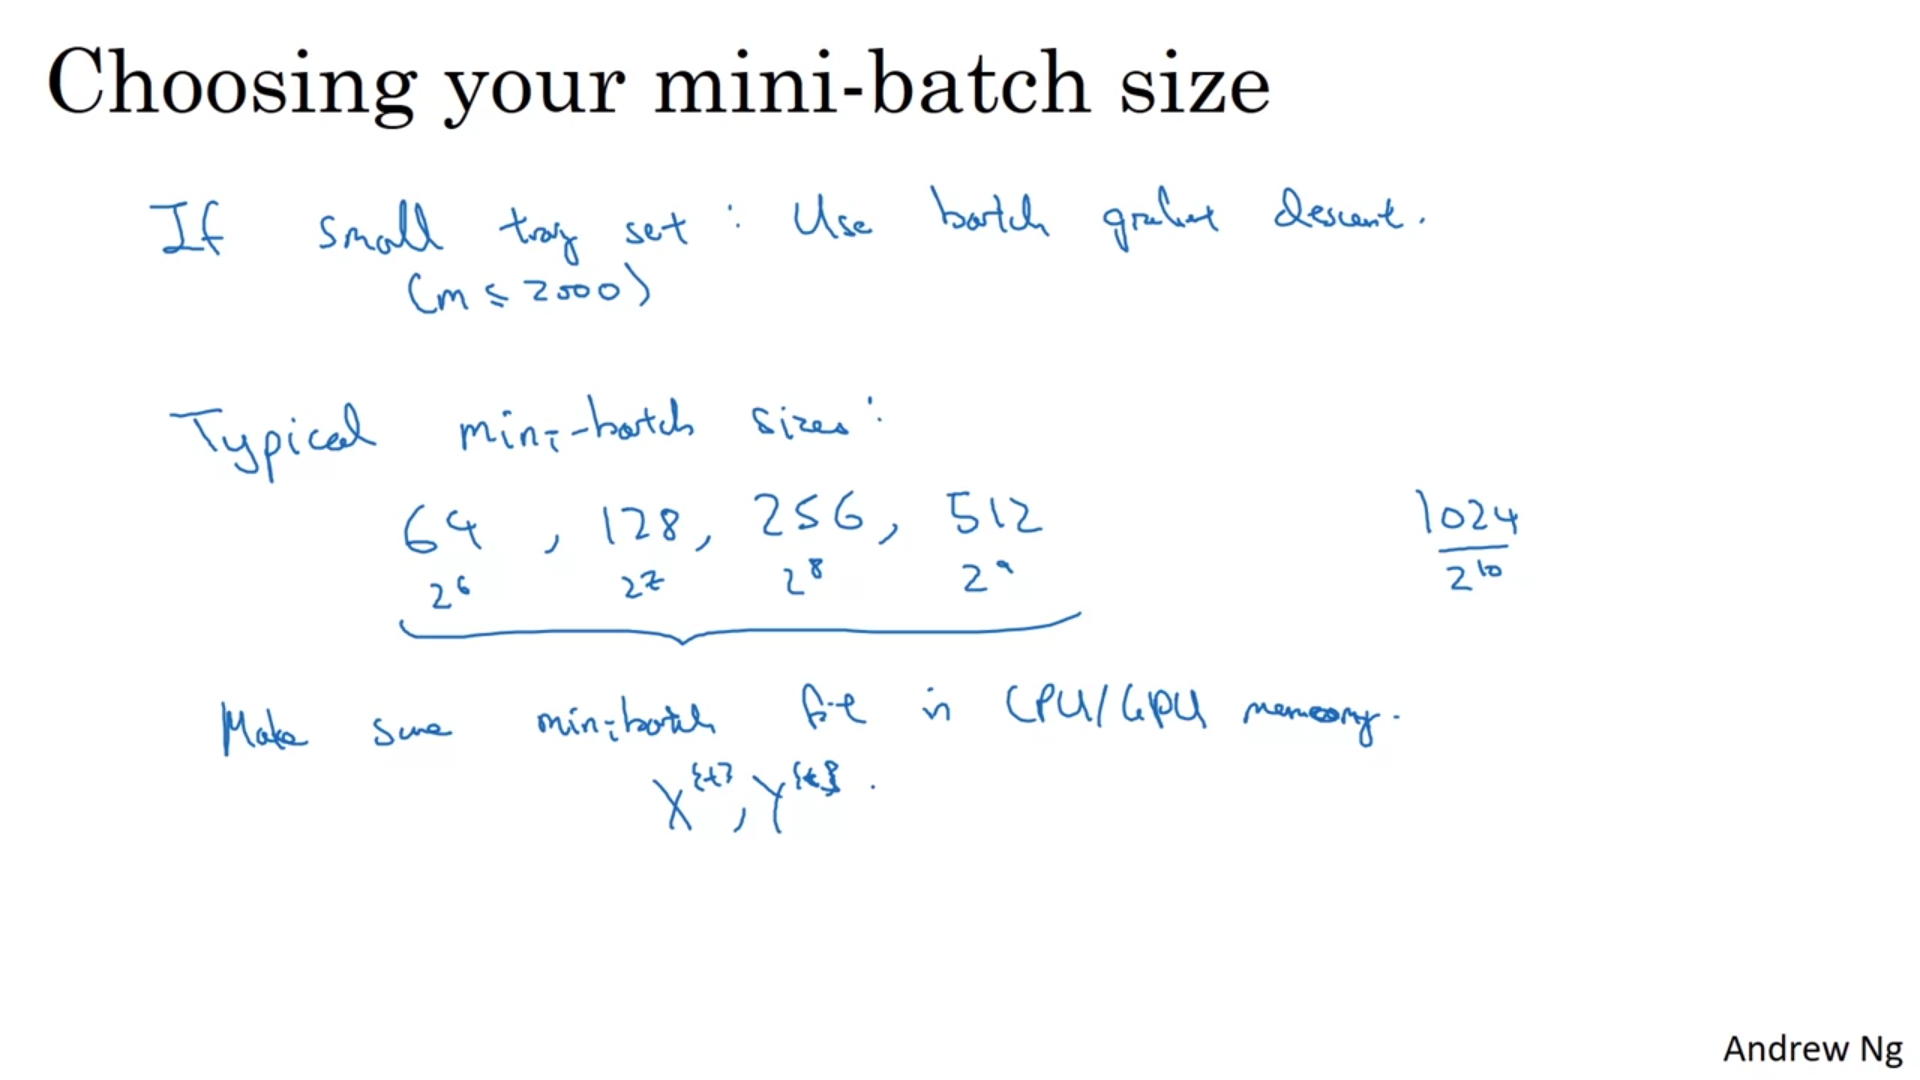 Choosing your mini-batch size
If small tray set : Use batch gradient descent.
(m ≤ 2000)
Typical mini-batch sizes:
64 , 128, 256, 512 1024
2^6 2^7 2^8 2^9 2^10
Make sure minibatch fit in CPU/GPU memory.
X^{t}, Y^{t}.
Andrew Ng